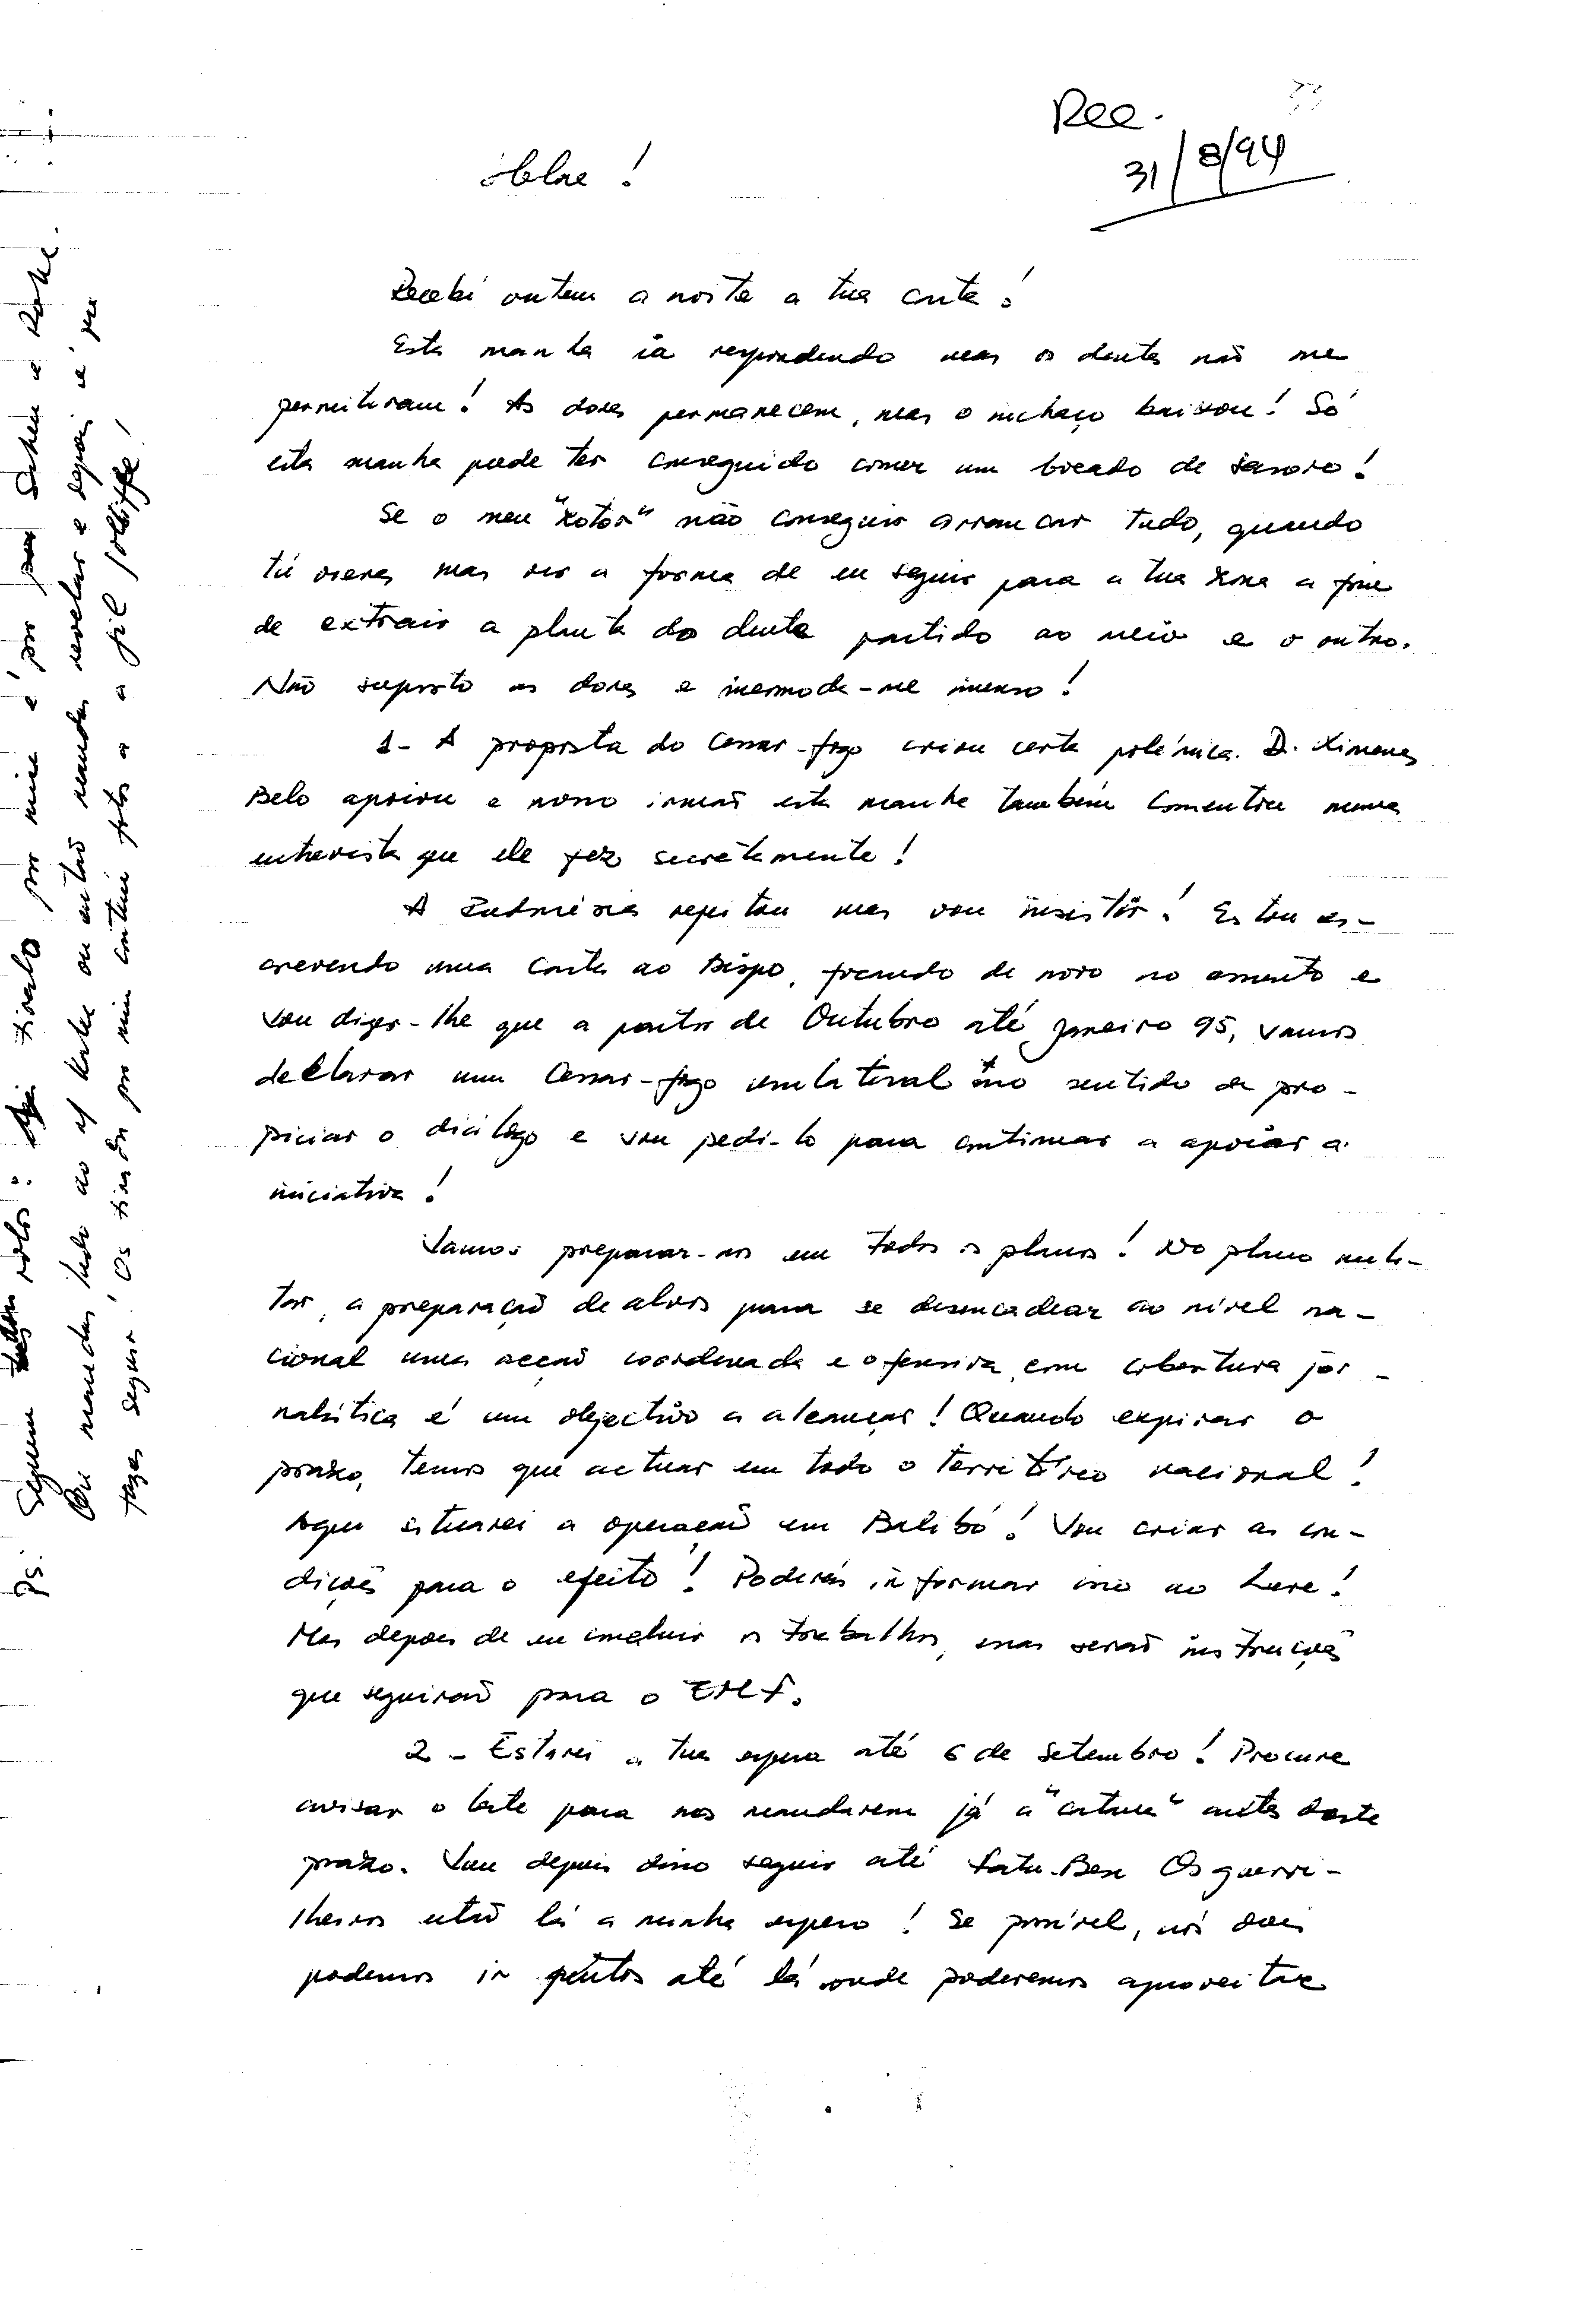 Rec.
31/8/94
!
Recebi ontem a noite a tua carta!
Esta manha ia respondendo mas os dentes não me
permitiram! As dores permanecem, mas o inchaço baixou! Só
esta manha pude ter conseguido comer um bocado de
Se o meu "Rotor" não conseguir arrancar tudo, quando
tú vieres mas ver a forma de eu seguir para a tua zona a fim
de extrair a planta do dente partido ao meio e o outro.
Não suporto as dores e incomoda-me imenso!
1- A proposta do Cessar-fogo criou certa polémica. D. Ximenes
Belo apoiou e nosso irmão esta manhe também comentou numa
entrevista que ele fez secretamente!
A Indonésia rejeitou mas vou insistir! Estou es-
crevendo uma carta ao Bispo, focando de novo no assunto e
vou dizer-lhe que a partir de Outubro até Janeiro 95, vamos
declarar um Cessar-fogo unilateral no sentido de pro-
piciar o diálogo e vou pedi-lo para continuar a apoiar a
iniciativa!
Vamos preparar-nos em todos os planos! No plano mili-
tar, a preparação de alvos para se desencadear ao nível na-
cional uma acção coordenada e ofensiva com cobertura jor-
nalística é um objectivo a alcançar! Quando expirar o
prazo, temos que actuar em todo o território nacional!
Aqui situarei a operação em Balibó! Vou criar as con-
dições para o efeito! Poderás informar isso ao Lere!
Mas depois de eu concluir os trabalhos, essas serão instruções
que seguirão para o EMF.
2 - Estarei a tua espera até 6 de Setembro! Procure
avisar o para nos mandarem já a antes deste
prazo. Vou depois disso seguir até Fatu-Besi Os guerri-
lheiros estão lá a minha espera! Se possível, nós dois
podemos ir juntos até lá onde poderemos aproveitar
Ps: Seguem rolos: tirado por mim é por
mandas tudo ao ou então mandas revelar e depois é me
fazer seguir! Os tirados por mim contém fotos a a jolliffe!